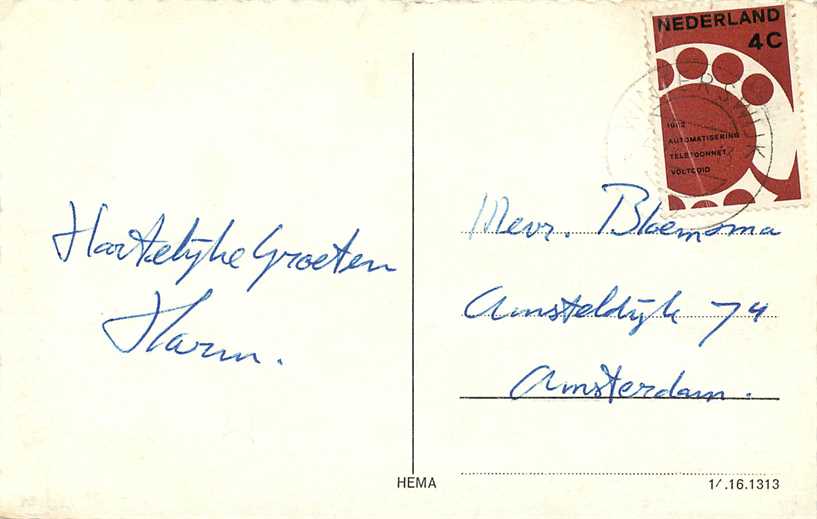 NEDERLAND
4C
WINTERSWIJK
1962
AUTOMATISERING
TELEFOONNET
VOLTOOID
Hartelijke Groeten
Harm.
Mevr. Bloemsma
Amsteldijk 74
Amsterdam.
HEMA
1/.16.1313